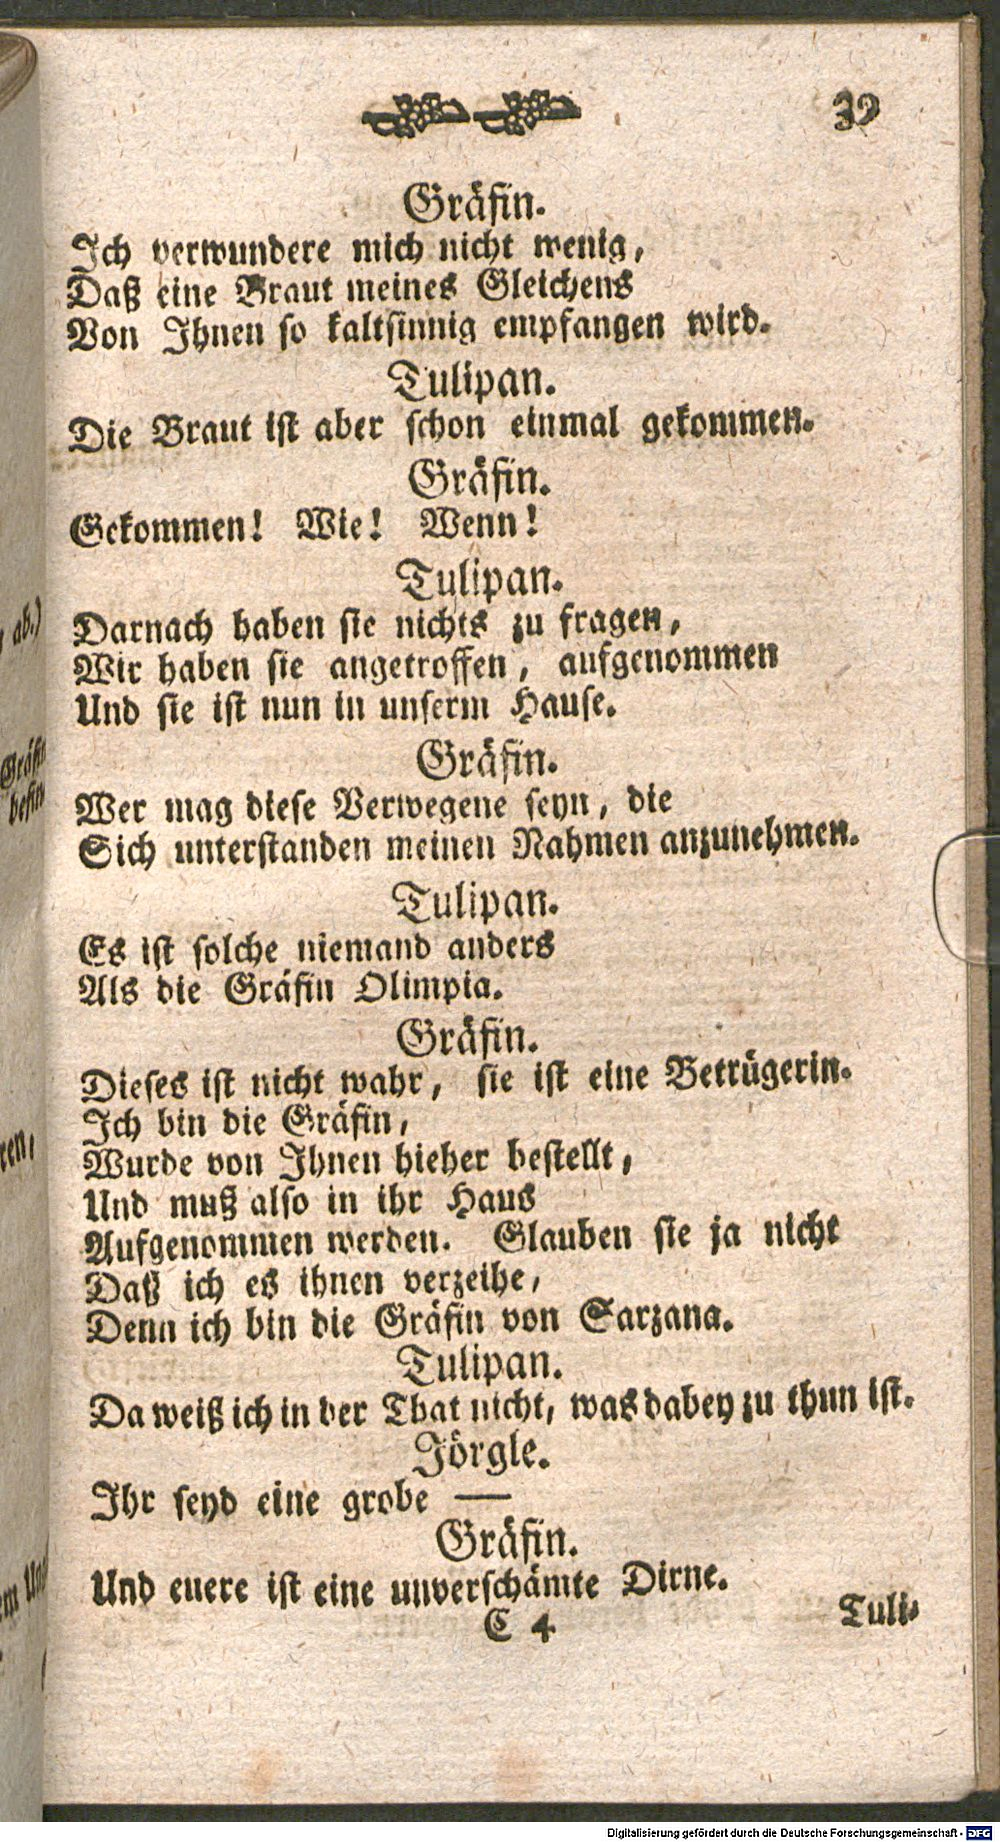 39
Gräfin.
Ich verwundere mich nicht wenig,
Daß eine Braut meines Gleichens
Von Ihnen so kaltsinnig empfangen wird.
Tulipan.
Die Braut ist aber schon einmal gekommen.
Gräfin.
Gekommen! Wie! Wenn!
Tulipan.
Darnach haben sie nichts zu fragen,
Wir haben sie angetroffen, aufgenommen
Und sie ist nun in unserm Hause.
Gräfin.
Wer mag diese Verwegene seyn, die
Sich unterstanden meinen Nahmen anzunehmen.
Tulipan.
Es ist solche niemand anders
Als die Gräfin Olimpia.
Gräfin.
Dieses ist nicht wahr, sie ist eine Betrügerin.
Ich bin die Gräfin,
Wurde von Ihnen hieher bestellt,
Und muß also in ihr Haus
Aufgenommen werden. Glauben sie ja nicht
Daß ich es ihnen verzeihe,
Denn ich bin die Gräfin von Sarzana.
Tulipan.
Da weiß ich in der That nicht, was dabey zu thun ist.
Jörgle.
Ihr seyd eine grobe —
Gräfin.
Und euere ist eine unverschämte Dirne.
C 4
Tuli-
ab.)
Gräfin
befin
ren,
Digitalisierung gefördert durch die Deutsche Forschungsgemeinschaft - DFG